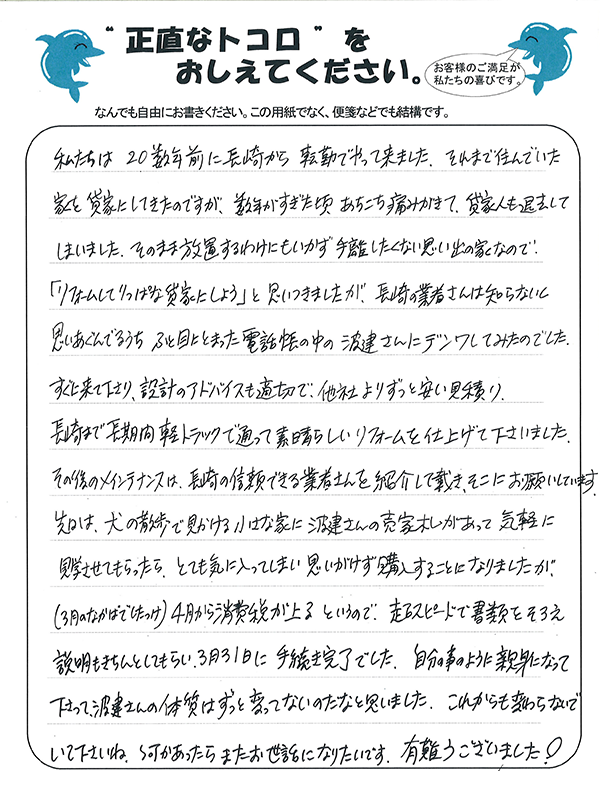 “正直なトコロ”を
おしえてください。
お客様のご満足が
私たちの喜びです。
なんでも自由にお書きください。この用紙でなく、便箋などでも結構です。
私たちは 20数年前に長崎から 転勤でやって来ました。それまで住んでいた
家を 貸家にしてきたのですが、数年がすぎた頃 あちこち痛みがきて、貸家人も退去して
しまいました。そのまま放置するわけにもいかず 手離したくない思い出の家なので、
「リフォームしてりっぱな貸家にしよう」と 思いつきましたが、長崎の業者さんは知らないし
思いあぐんでるうち ふと目にとまった 電話帳の中の 波建さんにデンワしてみたのでした。
すぐに来て下さり、設計のアドバイスも適切で、他社よりずっと安い見積り。
長崎まで長期間 軽トラックで通って 素晴らしいリフォームを 仕上げて下さいました。
その後のメインテナンスは、長崎の信頼できる業者さんを 紹介して戴き、そこにお願いしています。
先日は、犬の散歩で見かける 小さな家に 波建さんの売家札があって 気軽に
見学させてもらったら、とても気に入ってしまい 思いがけず購入することになりましたが、
(3月のなかばでしたっけ) 4月から消費税が上る というので、走るスピードで書類をそろえ
説明もきちんとしてもらい、3月31日に 手続き完了でした。自分の事のように親身になって
下さって、波建さんの体質はずっと変ってないのだなと思いました。これからも変わらないで
いて下さいね。何かあったら またお世話になりたいです。有難うございました!